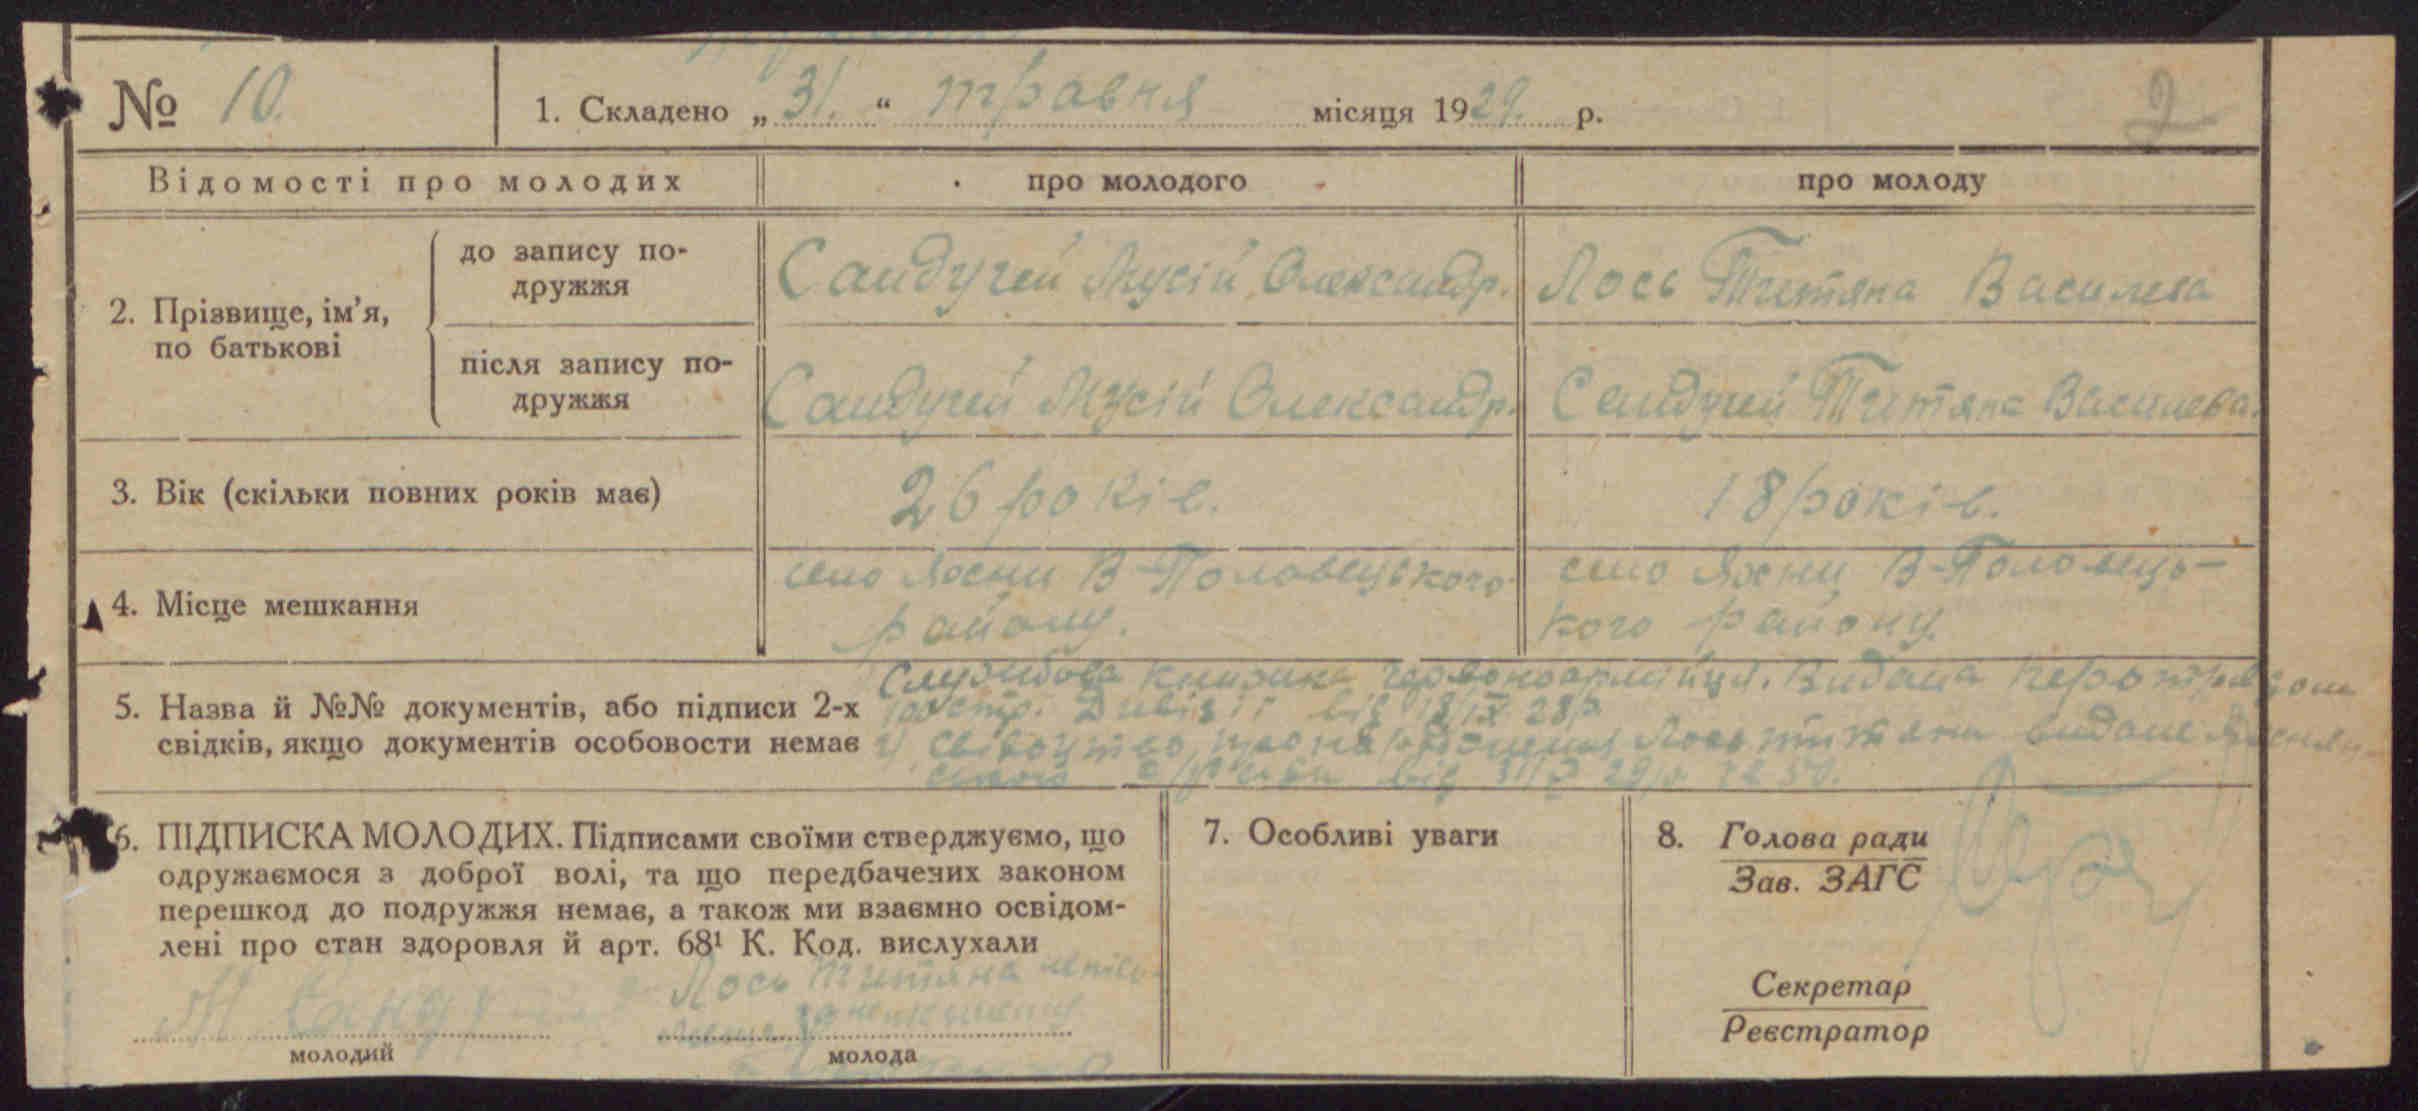 № 10. 1. Складено „31.“ травня місяця 1929. р.
2
Відомості про молодих про молодого про молоду
2. Прізвище, ім’я, по батькові
до запису по-
дружжя
Сандугей Мусій Олександр. Лось Титяна Василева
після запису по-
дружжя
Сандугей Мусій Олександр. Сандугей Титяна Василева.
3. Вік (скільки повних років має) 26 років. 18 років.
4. Місце мешкання
село Яхни В-Половецького
району.
село Яхни В-Половець-
кого району.
5. Назва й №№ документів, або підписи 2-х
свідків, якщо документів особовости немає
Службова книжка червоноармійця. Видана
100 стр. Дивізії від 18/IX 28р.
2) свідоцтво про народження Лось Титяни видане
від 31/V 29р.
6. ПІДПИСКА МОЛОДИХ. Підписами своїми стверджуємо, що
одружаємося з доброї волі, та що передбачених законом
перешкод до подружжя немає, а також ми взаємно освідом-
лені про стан здоровля й арт. 68¹ К. Код. вислухали
М Санду
молодий
Лось Титяна
молода
7. Особливі уваги
8. Голова ради
Зав. ЗАГС
Секретар
Реєстратор